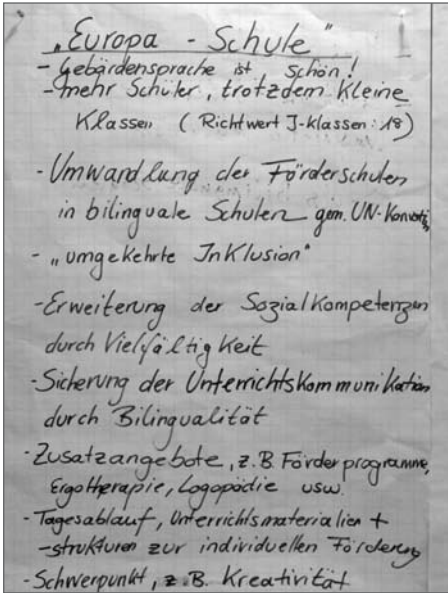 „Europa - Schule"
- Gebärdensprache ist schön!
- mehr Schüler, trotzdem kleine
Klassen (Richtwert I-Klassen: 18)
- Umwandlung der Förderschulen
in bilinguale Schulen gem. UN-
- „umgekehrte Inklusion"
- Erweiterung der Sozialkompetenzen
durch Vielfältigkeit
- Sicherung der Unterrichtskommunikation
durch Bilingualität
- Zusatzangebote, z.B. Förderprogramme,
Ergotherapie, Logopädie usw.
- Tagesablauf, Unterrichtsmaterialien +
-strukturen zur individuellen Förderung
- Schwerpunkt, z.B. Kreativität